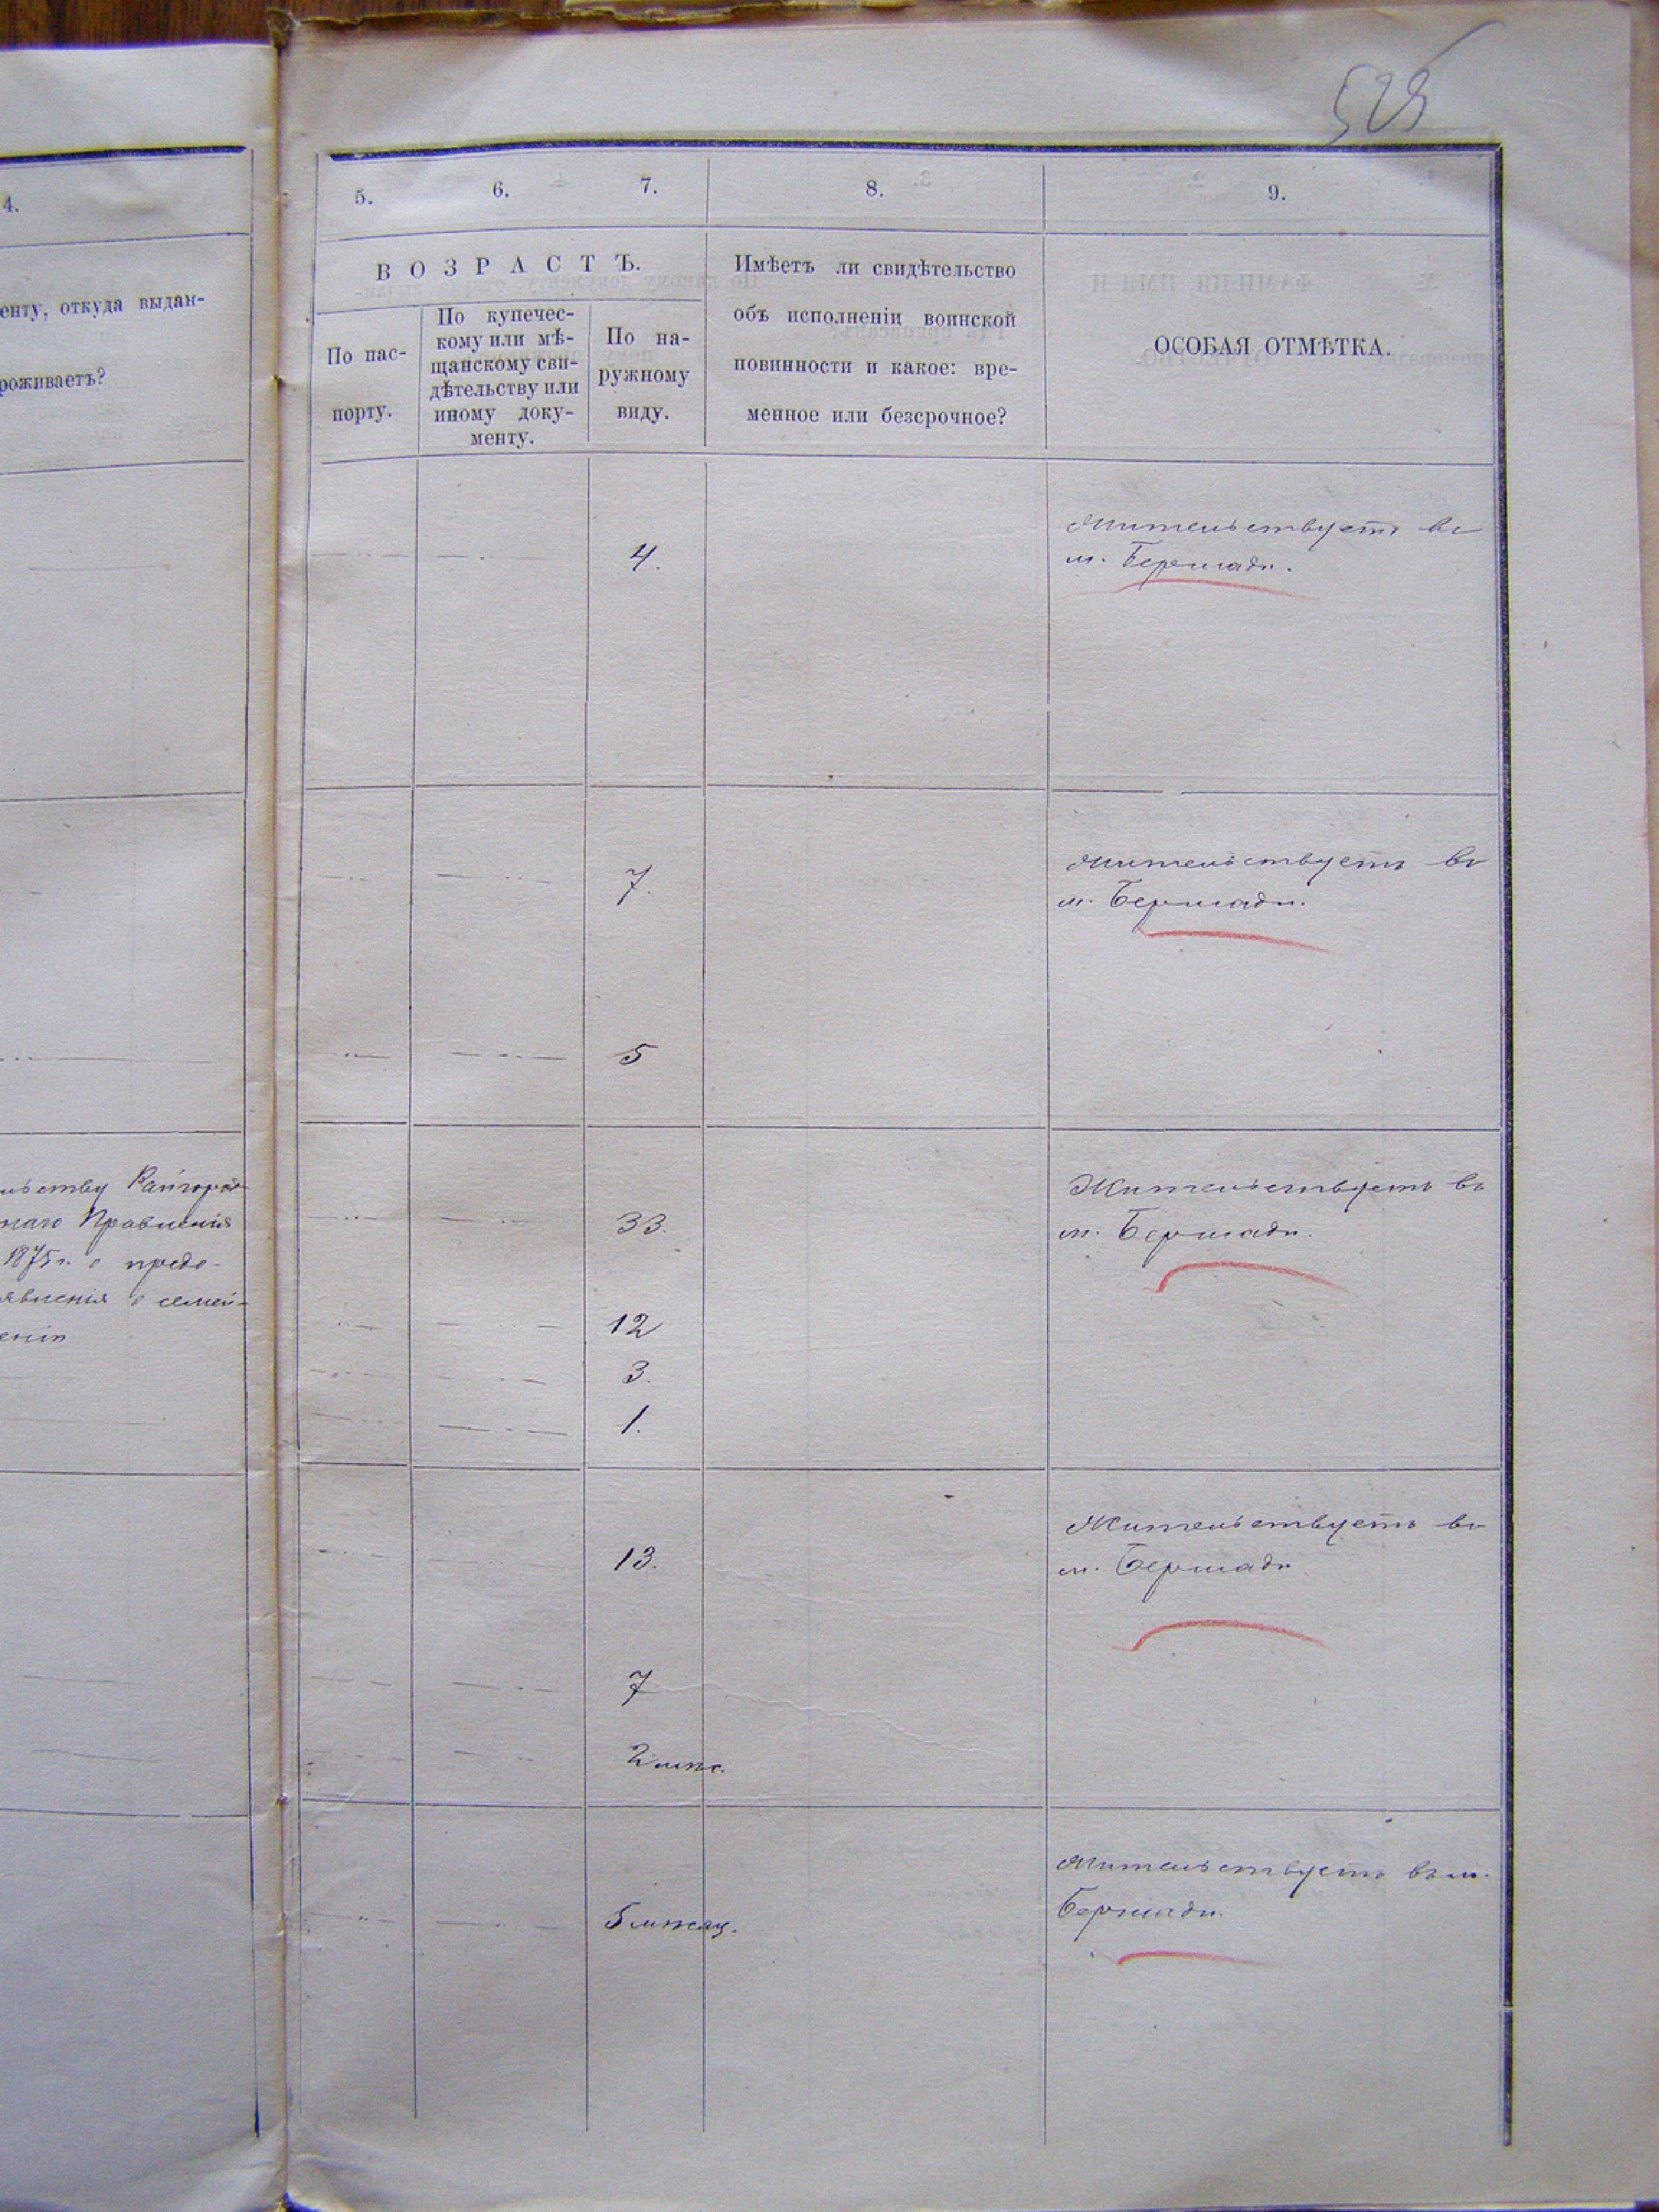 525
4.
енту, откуда выдан-
роживаетъ?
5.
6.
7.
8.
9.
ВОЗРАСТЪ.
По пас-
порту.
По купечес-
кому или мѣ-
щанскому сви-
дѣтельству или
иному доку-
менту.
По на-
ружному
виду.
Имѣетъ ли свидѣтельство
объ исполненіи воинской
повинности и какое: вре-
менное или безсрочное?
ОСОБАЯ ОТМѢТКА.
4.
Жительствуетъ въ
м. Бершади.
7.
Жительствуетъ въ
м. Бершади.
5
ьству Райгород-
наго Правленія
1875 г. о предъ-
явленія о семей-
еніи
33.
Жительствуетъ въ
м. Бершади.
12
3.
1.
13.
Жительствуетъ въ
м. Бершади
7
2 мѣс.
5 мѣсяц.
Жительствуетъ въ м.
Бершади.